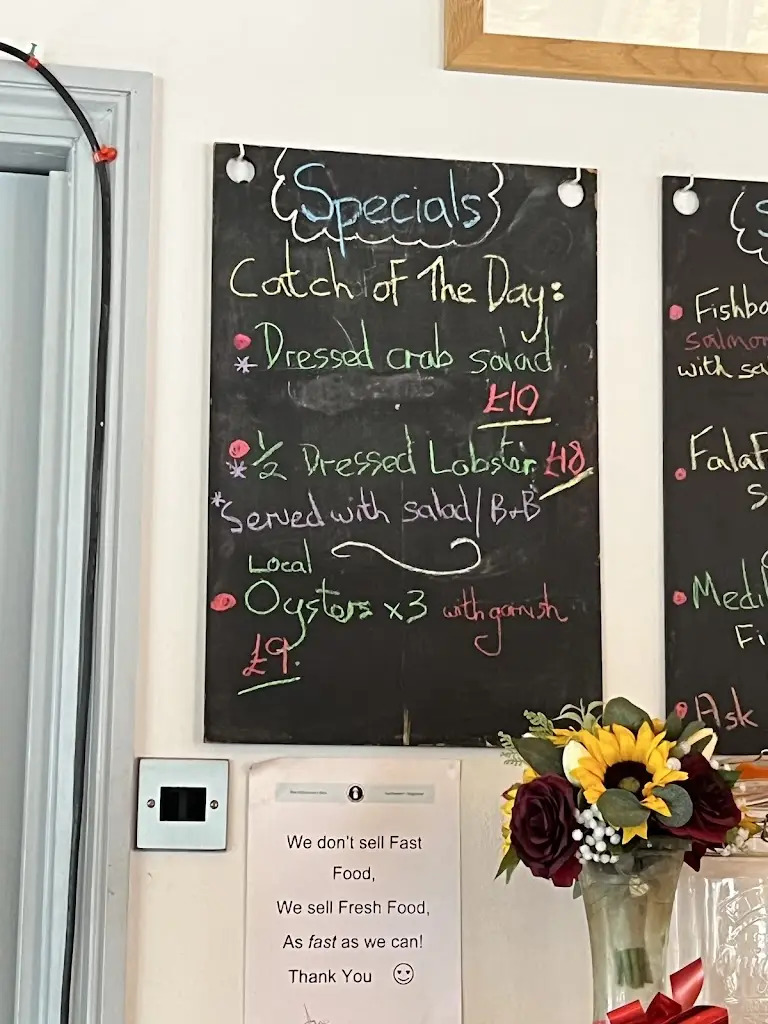 Specials
Catch of The Day:
* Dressed crab salad
£10
* 1/2 Dressed Lobster £18
*Served with salad/B+B
Local
Oysters x3 with garnish
£9.
Fishbo
Salmon
with sa
Falaf
S
Medi
Fi
Ask
We don't sell Fast
Food,
We sell Fresh Food,
As fast as we can!
Thank You ☺